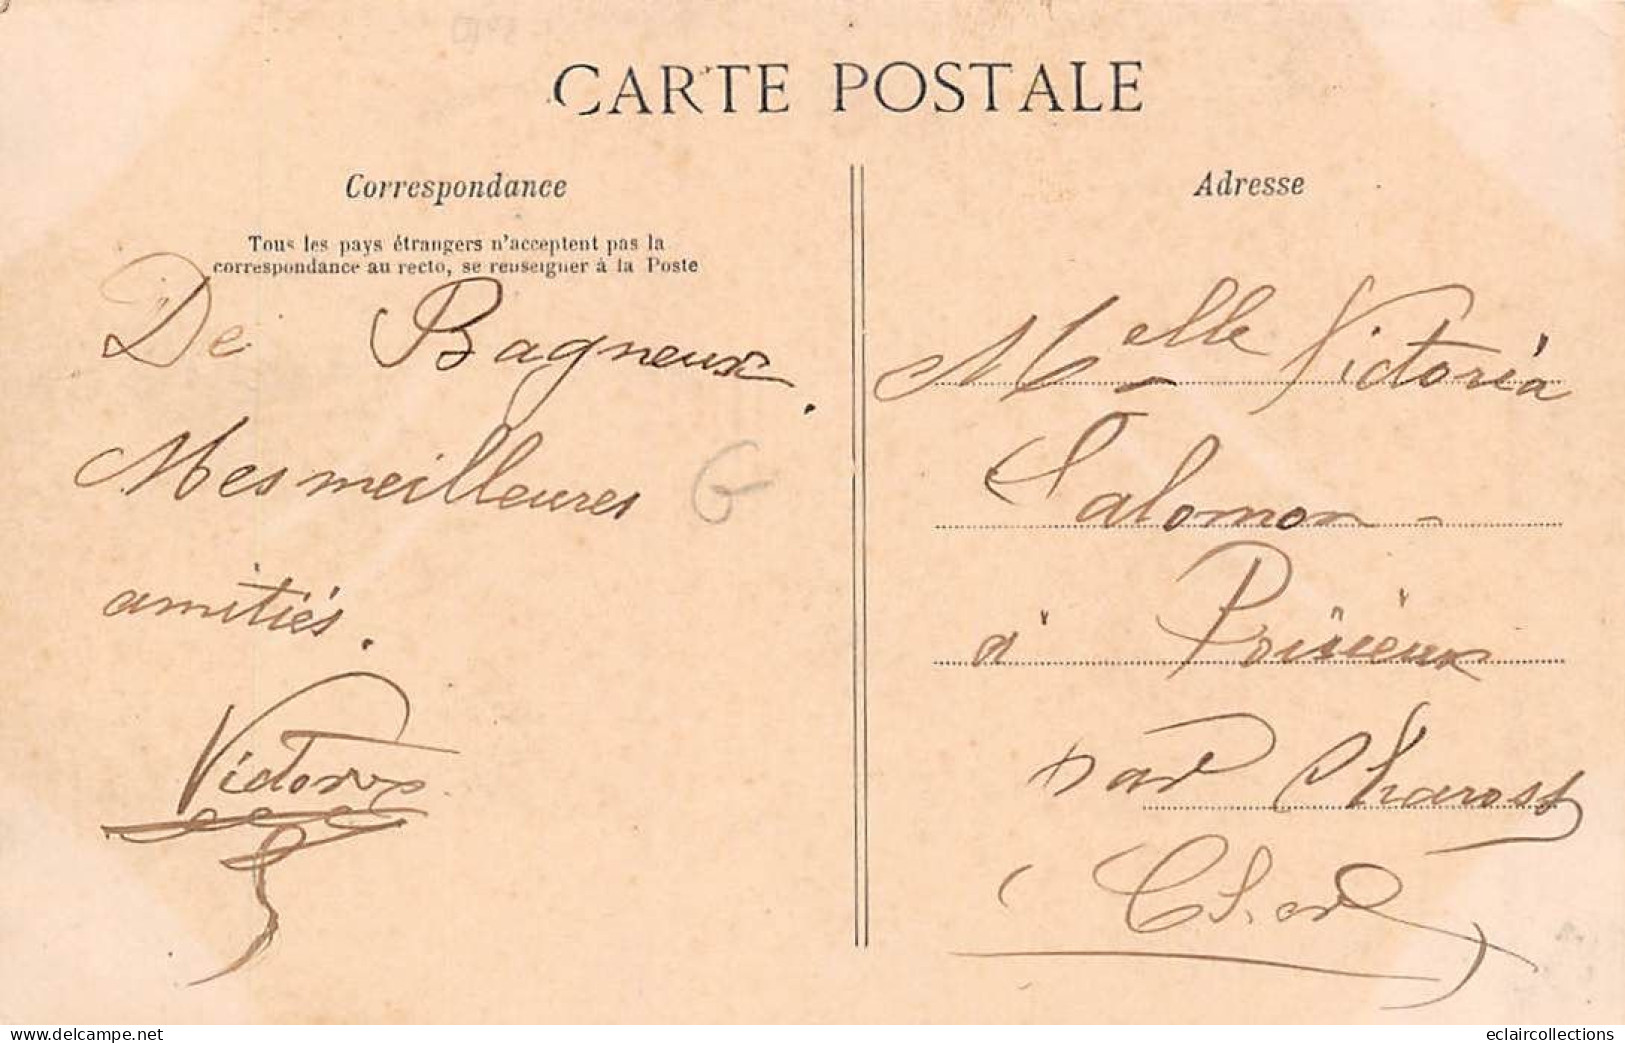 CARTE POSTALE
Correspondance
Tous les pays étrangers n'acceptent pas la
correspondance au recto, se renseigner à la Poste
De Bagneux.
Mes meilleures
amitiés.
Adresse
Melle Victoria
Salomon
à
par Charost
(Cher)
G
www.delcampe.net
eclaircollections